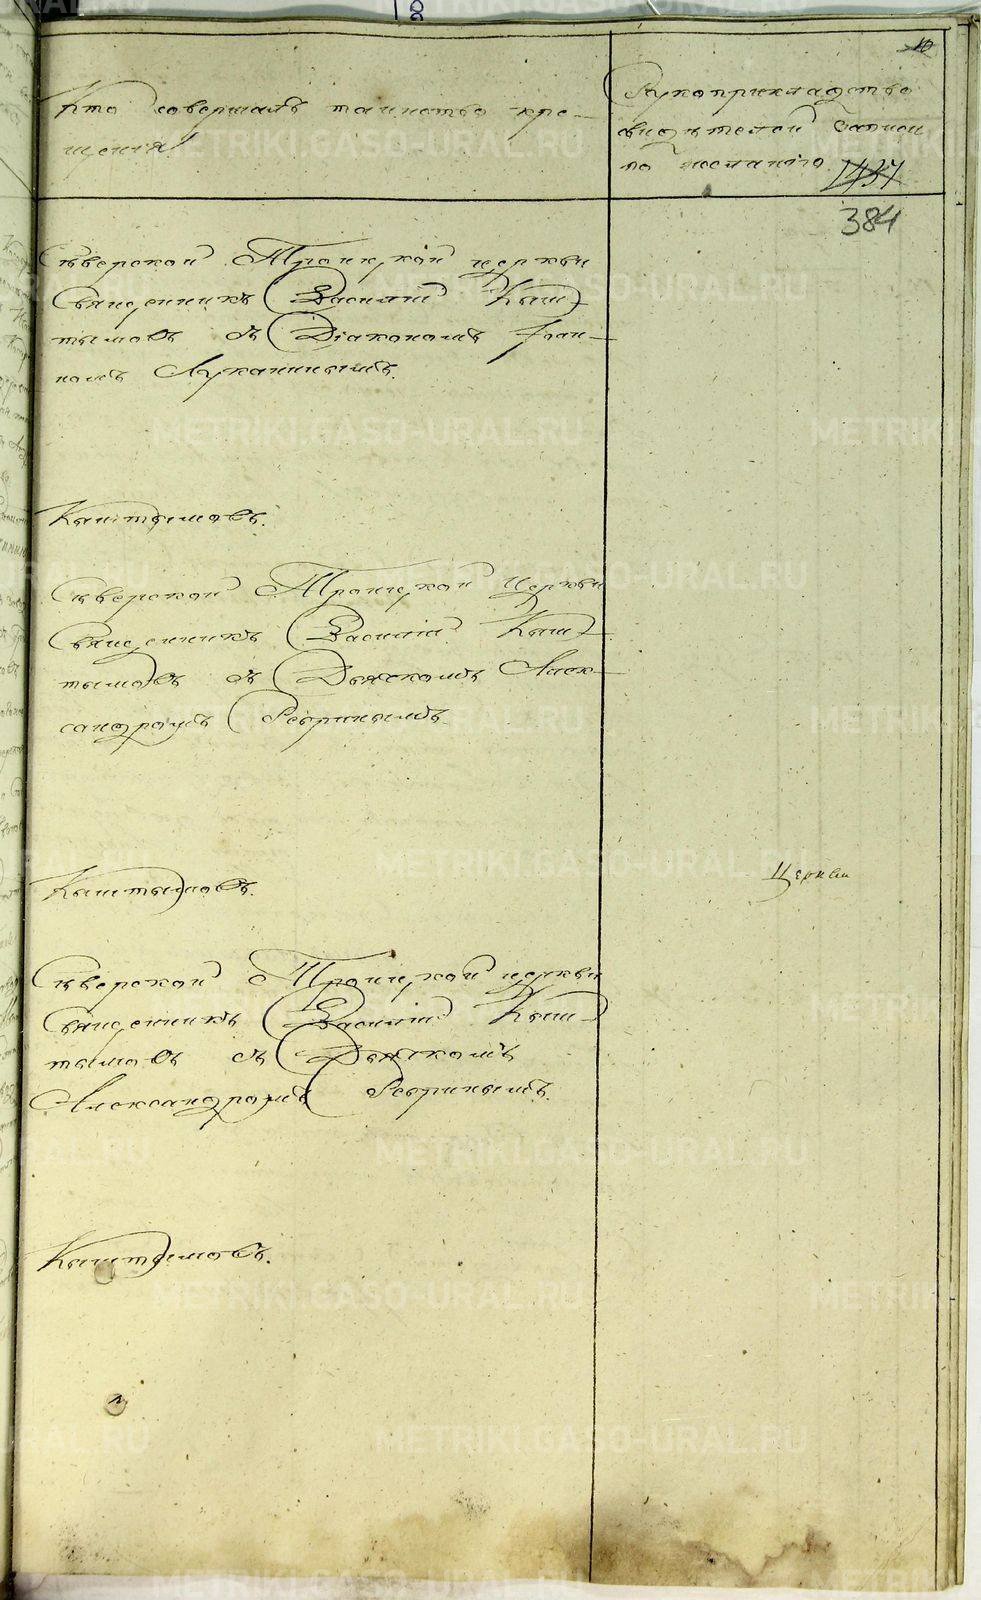 18
10
Кто совершалъ таинство кре-
щенія
Рукоприкладство
свидѣтелей записи
по желанію
1437
384
Сѣверской Троицкой церкви
Священникъ Василій Кыш-
тымовъ съ Діакономъ Іоан-
номъ Луканинымъ.
Кыштымовъ.
Сѣверской Троицкой Церкви
Священникъ Василій Кыш-
тымовъ съ Дьячкомъ Алек-
сандромъ Ребринымъ.
Кыштымовъ.
Церкви
Сѣверской Троицкой церкви
Священникъ Василій Кыш-
тымовъ съ Дьячкомъ
Александромъ Ребринымъ.
Кыштымовъ.
METRIKI.GASO-URAL.RU